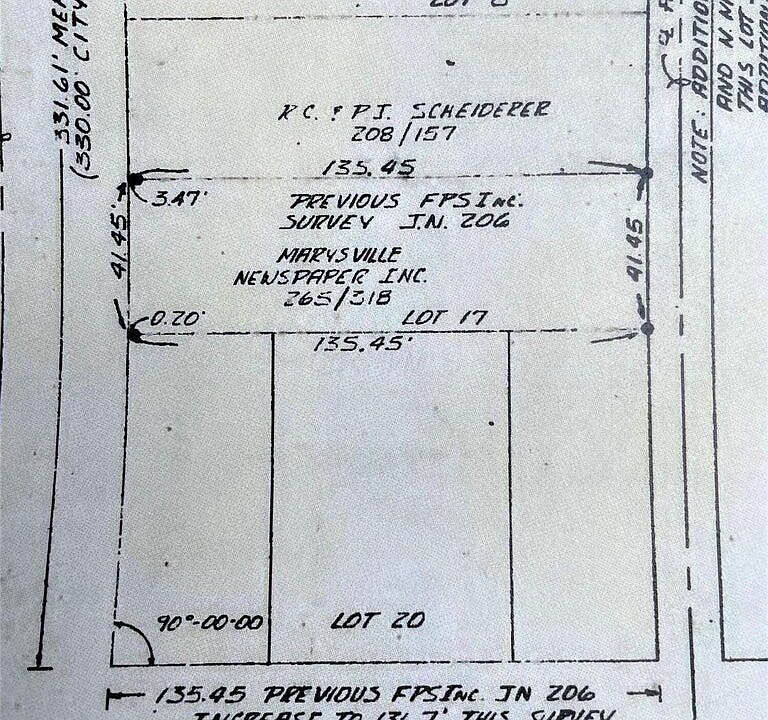 LOT
331.61' ME
(330.00' CITY
R.C. & P.J. SCHEIDERER
208/157
135.45
3.47'
PREVIOUS FPS INC.
SURVEY J.N. 206
41.45'
41.45
MARYSVILLE
NEWSPAPER INC.
265/318
0.20'
LOT 17
135.45'
90°-00-00
LOT 20
135.45 PREVIOUS FPS INC. JN 206
INCREASE TO 131.7' THIS SURVEY
NOTE: ADDITIO
AND N.
THIS LOT
ADDITION